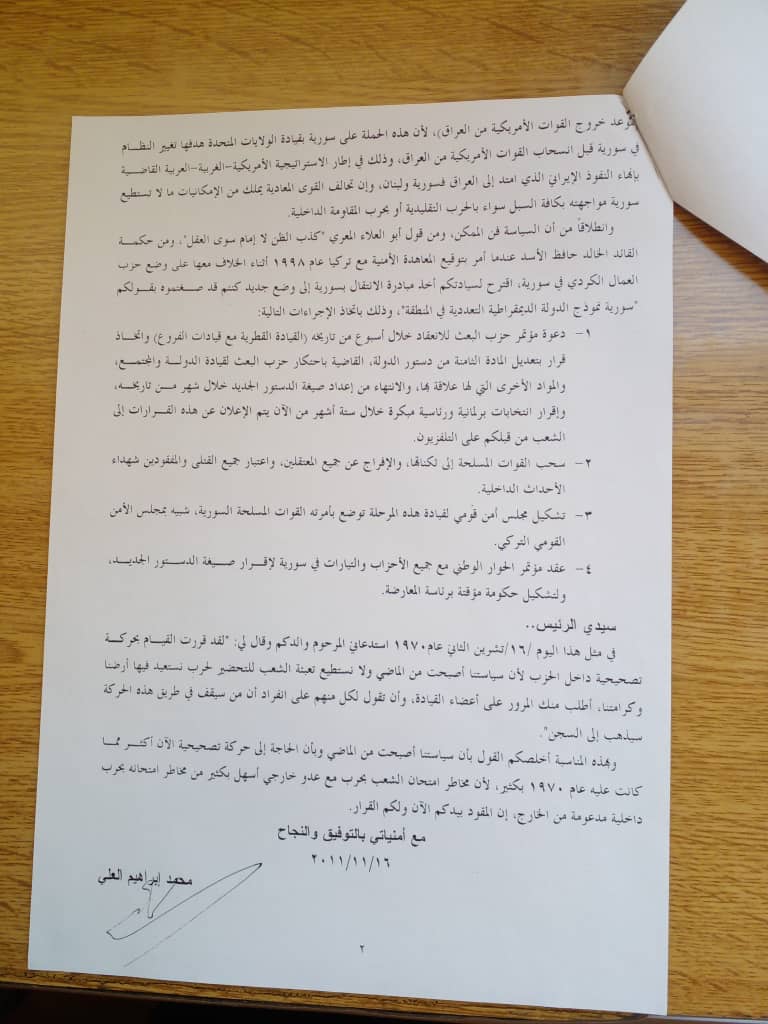 موعد خروج القوات الأمريكية من العراق)، لأن هذه الحملة على سورية بقيادة الولايات المتحدة هدفها تغيير النظام
في سورية قبل انسحاب القوات الأمريكية من العراق، وذلك في إطار الاستراتيجية الأمريكية-الغربية-العربية القاضية
بإنهاء النفوذ الإيراني الذي امتد إلى العراق فسورية ولبنان، وإن تحالف القوى المعادية يملك من الإمكانيات ما لا تستطيع
سورية مواجهته بكافة السبل سواء بالحرب التقليدية أو بحرب المقاومة الداخلية.
وانطلاقاً من أن السياسة فن الممكن، ومن قول أبو العلاء المعري "كذب الظن لا إمام سوى العقل"، ومن حكمة
القائد الخالد حافظ الأسد عندما أمر بتوقيع المعاهدة الأمنية مع تركيا عام ١٩٩٨ أثناء الخلاف معها على وضع حزب
العمال الكردي في سورية، اقترح لسيادتكم أخذ مبادرة الانتقال بسورية إلى وضع جديد كنتم قد صغتموه بقولكم
"سورية نموذج الدولة الديمقراطية التعددية في المنطقة"، وذلك باتخاذ الإجراءات التالية:
١- دعوة مؤتمر حزب البعث للانعقاد خلال أسبوع من تاريخه (القيادة القطرية مع قيادات الفروع) واتخاذ
قرار بتعديل المادة الثامنة من دستور الدولة، القاضية باحتكار حزب البعث لقيادة الدولة والمجتمع،
والمواد الأخرى التي لها علاقة بها، والانتهاء من إعداد صيغة الدستور الجديد خلال شهر من تاريخه،
وإقرار انتخابات برلمانية ورئاسية مبكرة خلال ستة أشهر من الآن يتم الإعلان عن هذه القرارات إلى
الشعب من قبلكم على التلفزيون.
٢- سحب القوات المسلحة إلى ثكناتها، والإفراج عن جميع المعتقلين، واعتبار جميع القتلى والمفقودين شهداء
الأحداث الداخلية.
٣- تشكيل مجلس أمن قومي لقيادة هذه المرحلة توضع بأمرته القوات المسلحة السورية، شبيه بمجلس الأمن
القومي التركي.
٤- عقد مؤتمر الحوار الوطني مع جميع الأحزاب والتيارات في سورية لإقرار صيغة الدستور الجديد،
ولتشكيل حكومة مؤقتة برئاسة المعارضة.
سيدي الرئيس..
في مثل هذا اليوم /١٦/تشرين الثاني عام١٩٧٠ استدعاني المرحوم والدكم وقال لي: "لقد قررت القيام بحركة
تصحيحية داخل الحزب لأن سياستنا أصبحت من الماضي ولا نستطيع تعبئة الشعب للتحضير لحرب نستعيد فيها أرضنا
وكرامتنا، أطلب منك المرور على أعضاء القيادة، وأن تقول لكل منهم على انفراد أن من سيقف في طريق هذه الحركة
سيذهب إلى السجن".
وبهذه المناسبة أخلصكم القول بأن سياستنا أصبحت من الماضي وبأن الحاجة إلى حركة تصحيحية الآن أكثر مما
كانت عليه عام ١٩٧٠ بكثير، لأن مخاطر امتحان الشعب بحرب مع عدو خارجي أسهل بكثير من مخاطر امتحانه بحرب
داخلية مدعومة من الخارج، إن المقود بيدكم الآن ولكم القرار.
مع أمنياتي بالتوفيق والنجاح
٢٠١١/١١/١٦
محمد إبراهيم العلي
٢